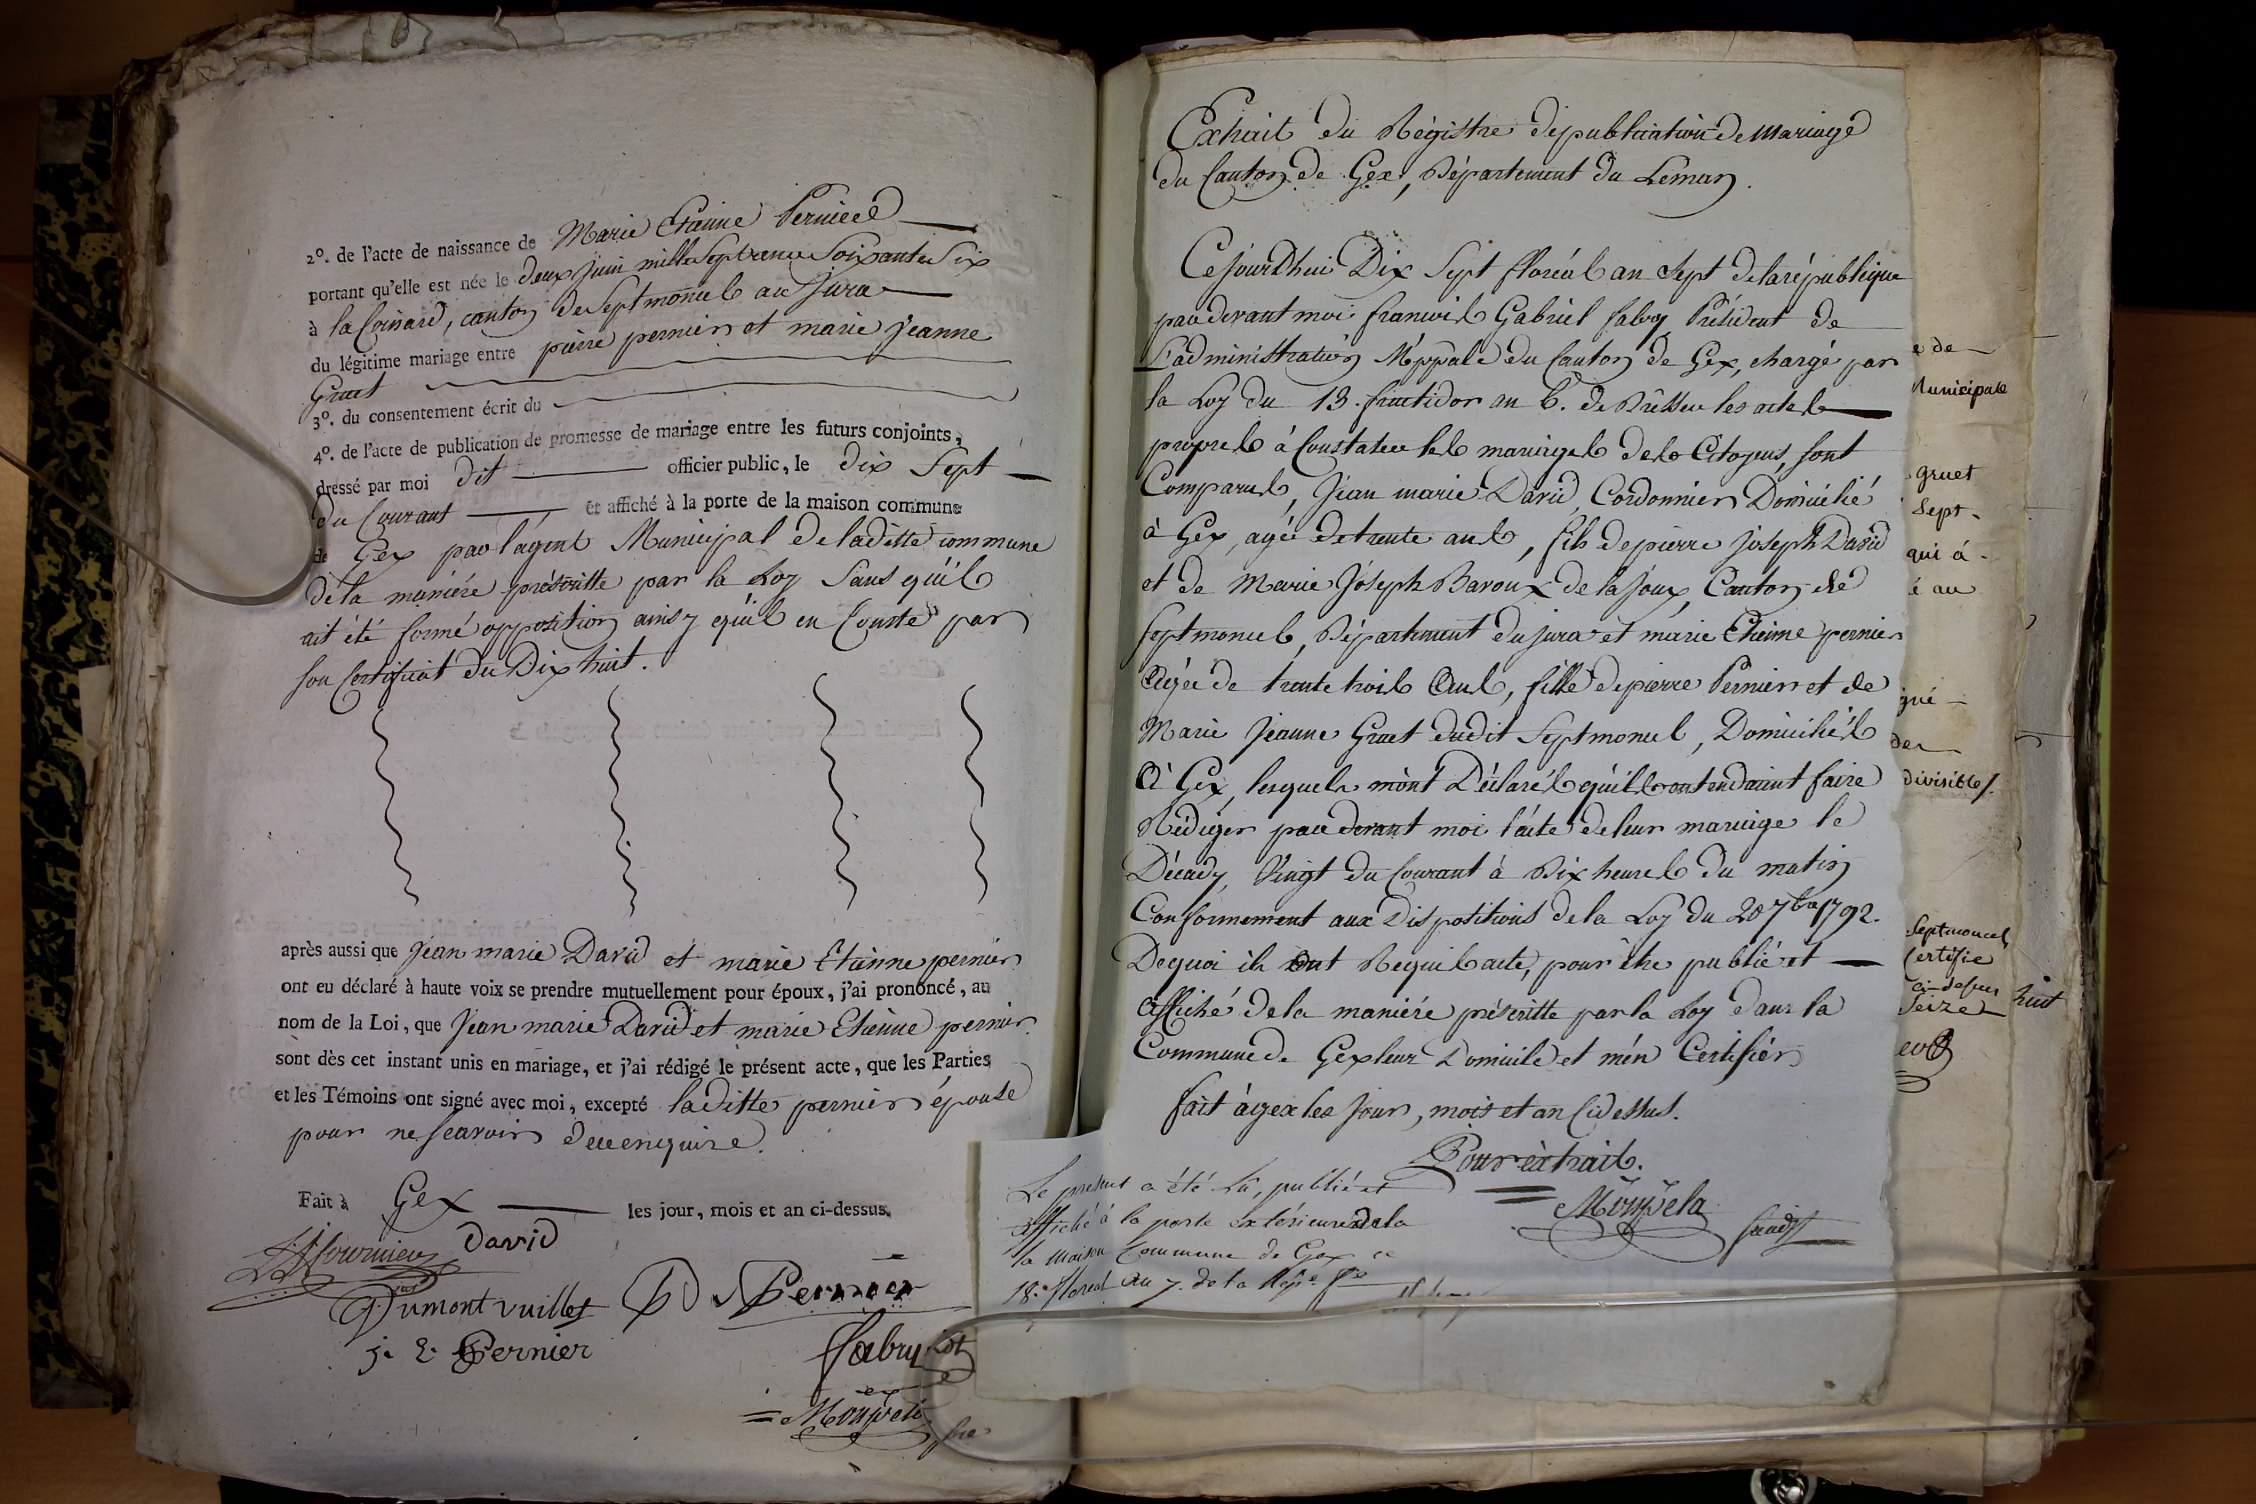 2°. de l'acte de naissance de Marie Etienne Pernier
portant qu'elle est née le deux Juin mille Sept cents Soixante Six
à la , canton de Septmoncel au Jura
du légitime mariage entre pierre pernier et marie jeanne
Gruet
3°. du consentement écrit du
4°. de l'acte de publication de promesse de mariage entre les futurs conjoints,
dressé par moi dit officier public, le dix Sept
du Courant et affiché à la porte de la maison commune
de Gex par l'agent Municipal de laditte commune
de la maniére préscritte par la Loy Sans qu'il
ait été formé opposition ainsy qu'il en Conste par
son Certificat du Dix huit.
après aussi que Jean marie David et marie Etienne pernier
ont eu déclaré à haute voix se prendre mutuellement pour époux, j'ai prononcé, au
nom de la Loi, que Jean marie David et marie Etienne pernier
sont dès cet instant unis en mariage, et j'ai rédigé le présent acte, que les Parties
et les Témoins ont signé avec moi, excepté laditte pernier épouse
pour ne scavoir de ce enquise.
Fait à Gex les jour, mois et an ci-dessus.
David
Dumont vuillet
Pernier
j. E. Pernier
fabry
Extrait du Régistre de publication de Mariage
du Canton de Gex, Département du Leman.
Cejourdhui Dix Sept floréal an Sept de la république
par devant moi francois Gabriel fabry Président de
L'administration M'ppale du Canton de Gex, chargé par
la Loy du 13. fructidor an 6. de Dresser les actes
propres à Constater les mariages des Citoyens, sont
Comparus, Jean marie David, Cordonnier Domicilié
à Gex, agée de trente ans, fils de pierre Joseph David
et de Marie Joseph Baroux de la joux, Canton de
Septmoncel, Département du jura et marie Etienne pernier
Agée de trente trois Ans, fille de pierre Pernier et de
Marie Jeanne Gruet dudit Septmoncel, Domiciliés
à Gex, lesquels m'ont Déclarés qu'ils entendaient faire
Rédiger par devant moi l'acte de leur mariage le
Décady, Vingt du Courant à Dix heures du matin
Conformement aux Dispositions de la Loy du 20 7bre 1792.
De quoi ils ont Requis acte, pour être publié et
affiché de la maniére préscritte par la Loy dans la
Commune de Gex leur Domicile et m'en Certifier
fait à gex les Jour, mois et an Cidessus.
Pour extrait.
Le présent a été Lu, publié et
affiché à la porte extérieure de la
la maison Commune de Gex ce
18. floréal an 7. de la Rép.
e de
Municipale
gruet
Sept
qui á
é au
gné
der
divisible/.
Septmoncel
Certifie
ci-dessus
Seize
huit